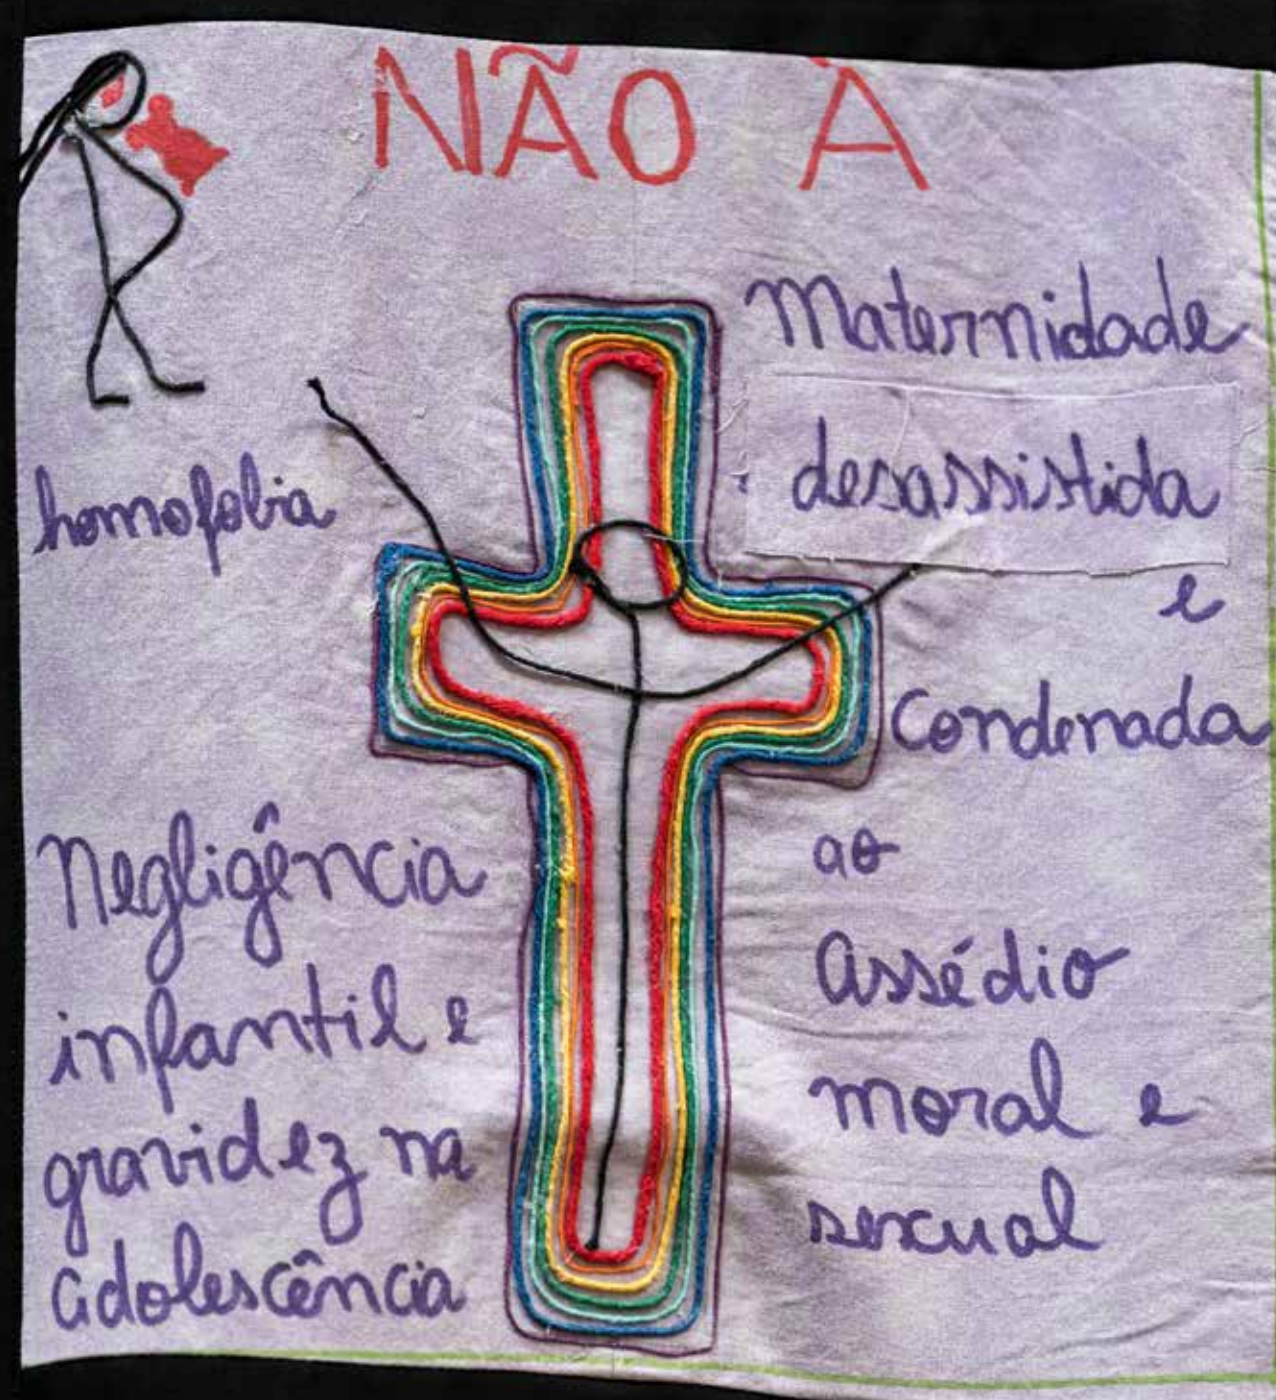 NÃO À
homofobia
Negligência
infantil e
gravidez na
adolescência
Maternidade
desassistida
e
Condenada
ao
Assédio
moral e
sexual